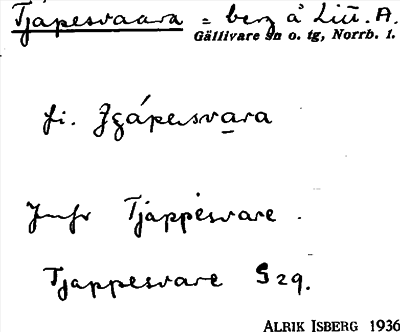 Tjåpesvaara = berg å Lin. A.
Gällivare sn o. tg, Norrb. l.
fi.
Jmfr Tjåppesvare.
Tjappesvare S 29.
ALRIK ISBERG 1936